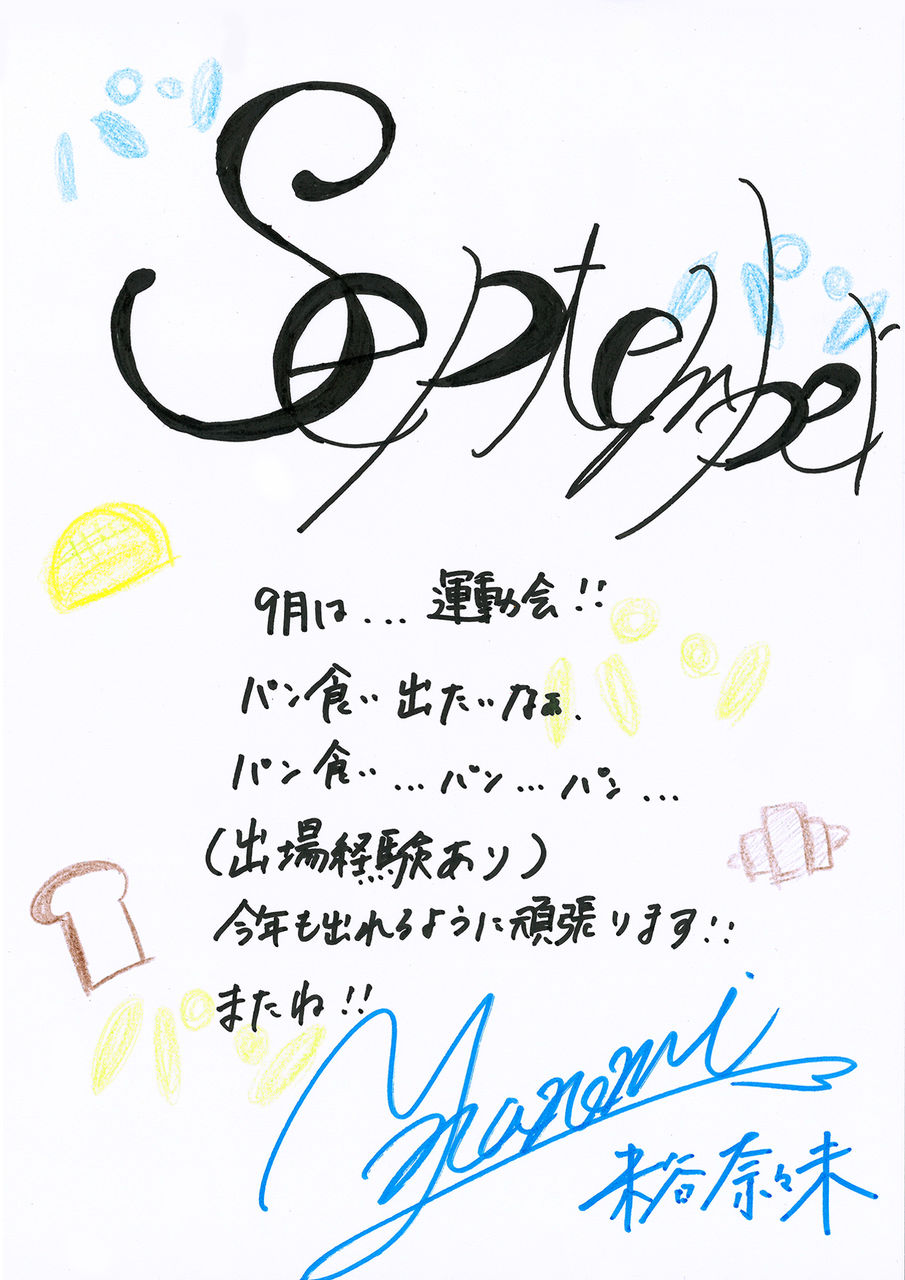 パン
September
パン
9月は...運動会!!
パン食い出たいなぁ.
パン
パン食い...パン...パン...
(出場経験あり)
今年も出れるように頑張ります!!
またね!!
パン
Yanemi
米谷奈々未